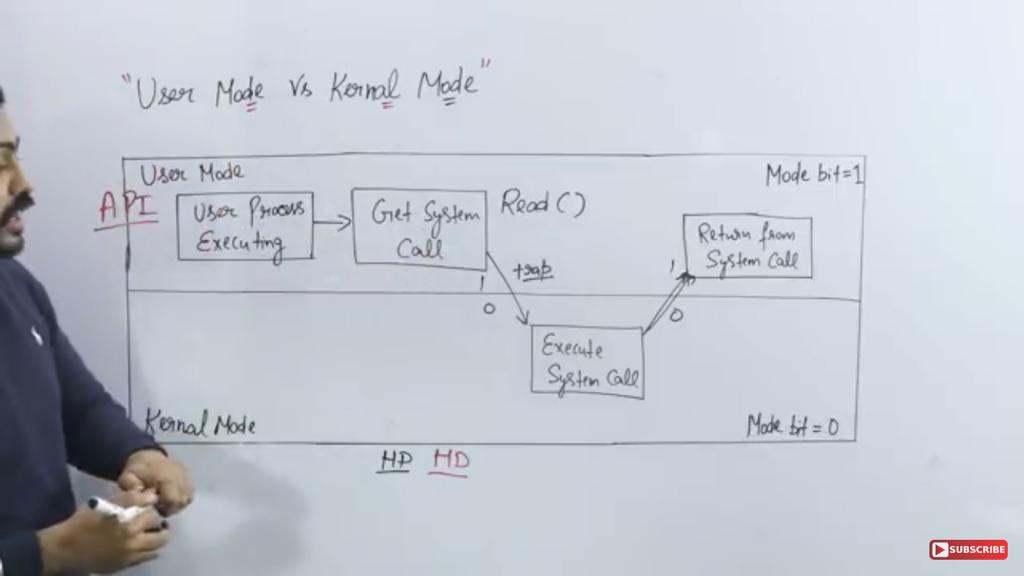 "User Mode Vs Kernal Mode"
User Mode
Mode bit=1
API
User Process
Executing
Get System
Call
Read()
Return from
System Call
trap
1
1
0
0
Execute
System Call
Kernal Mode
Mode bit = 0
HD HD
SUBSCRIBE